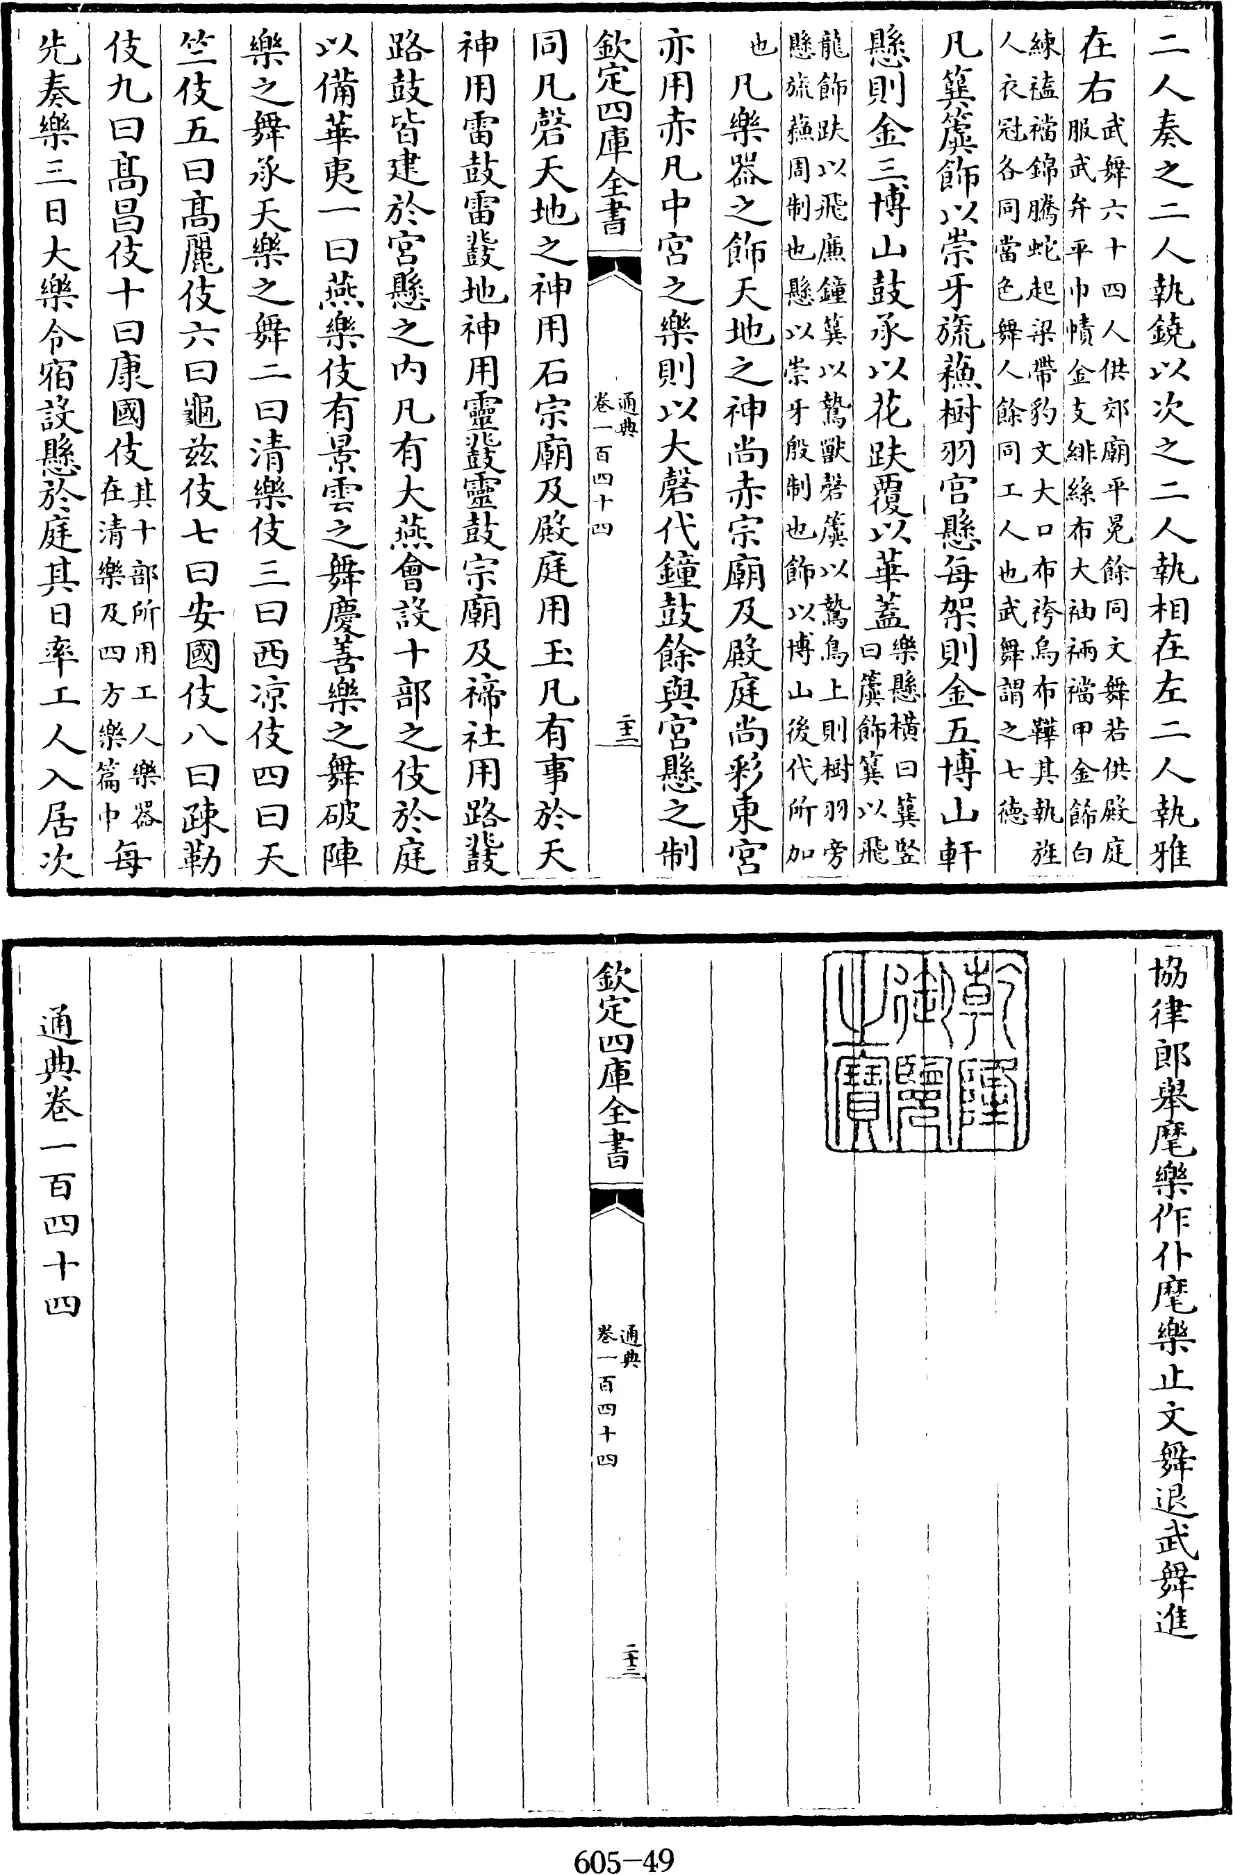 二人奏之二人執鐃以次之二人執相在左二人執雅
在右武舞六十四人供郊廟平冕餘同文舞若供殿庭
服武弁平巾幘金支緋絲布大袖裲襠甲金飾白
練𧛾襠錦騰蛇起梁帶豹文大口布袴烏布鞾其執旌
人衣冠各同當色舞人餘同工人也武舞謂之七德
凡簨簴飾以崇牙旒蘓樹羽宫懸每架則金五博山軒
懸則金三博山鼓承以花趺覆以華蓋樂懸横曰簨竪
曰簴飾簨以飛
龍飾趺以飛廉鐘簨以鷙獸磬簴以鷙鳥上則樹羽旁
懸旒蘓周制也懸以崇牙殷制也飾以博山後代所加
也凡樂器之飾天地之神尚赤宗廟及殿庭尚彩東宫
亦用赤凡中宫之樂則以大磬代鐘鼓餘與宫懸之制
欽定四庫全書
通典
卷一百四十四
二十三
同凡磬天地之神用石宗廟及殿庭用玉凡有事於天
神用雷鼓雷鼗地神用靈鼗靈鼓宗廟及禘社用路鼗
路鼓皆建於宫懸之内凡有大燕會設十部之伎於庭
以備華夷一曰燕樂伎有景雲之舞慶善樂之舞破陣
樂之舞承天樂之舞二曰清樂伎三曰西凉伎四曰天
竺伎五曰髙麗伎六曰龜兹伎七曰安國伎八曰疎勒
伎九曰髙昌伎十曰康國伎其十部所用工人樂器
在清樂及四方樂篇中每
先奏樂三日大樂令宿設懸於庭其日率工人入居次
協律郎舉麾樂作仆麾樂止文舞退武舞進
乾隆御覽之寶
欽定四庫全書
通典
卷一百四十四
二十三
通典卷一百四十四
605-49